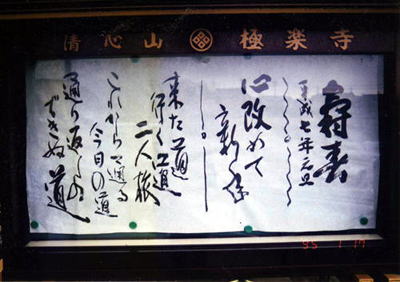 清心山 極楽寺
壽春
平成七年元旦
心改めて
新年
来た道
行く道
二人旅
これから通る
今日の道
通り しの
できぬ道
95 1 17